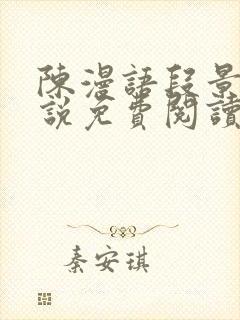 陳漫語段景
說免費閱讀
秦安琪